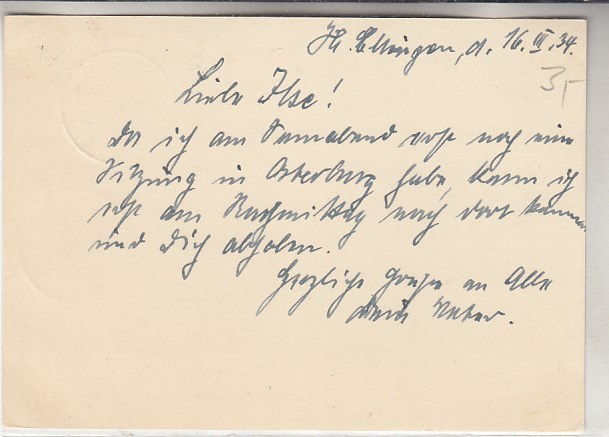 Kl. Ellingen, d. 16. III. 34.
Liebe Ilse!
Da ich am Sonnabend erst noch eine
Sitzung in Osterburg habe, kann ich
erst am Nachmittag nach dort kommen
und Dich abholen.
Herzliche Grüße an Alle
Dein Vater.